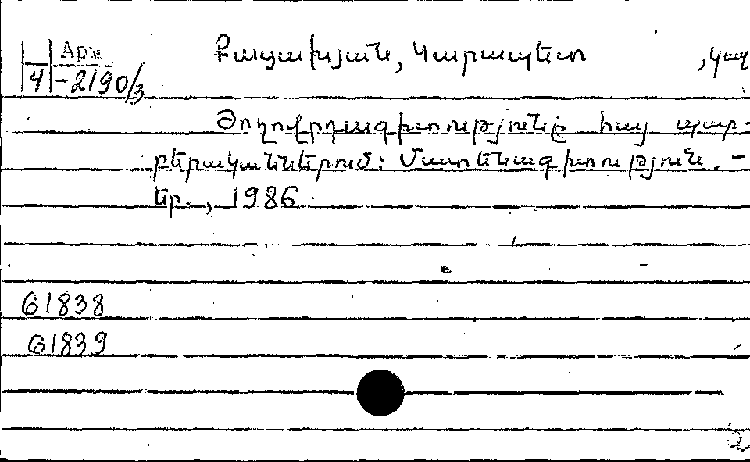 Арм
4-2190/3
Բալախյան, Կարապետ , կազ
Ժողովրդագիտությունը հայ պար-
բերականներում: Մատենագիտություն. –
Եր., 1986
61838
61839